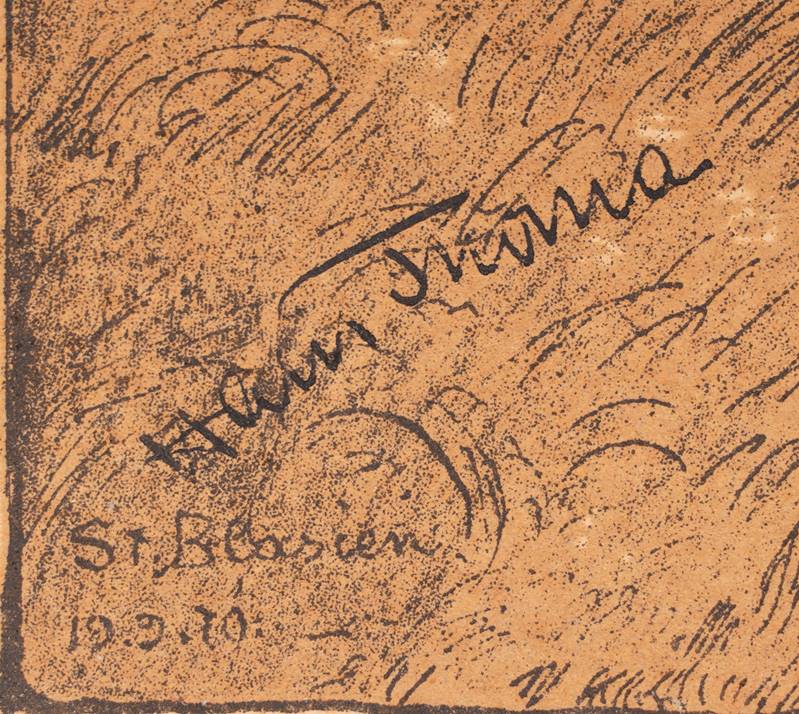 Hans Thoma
St. Blasien
19.9.10.